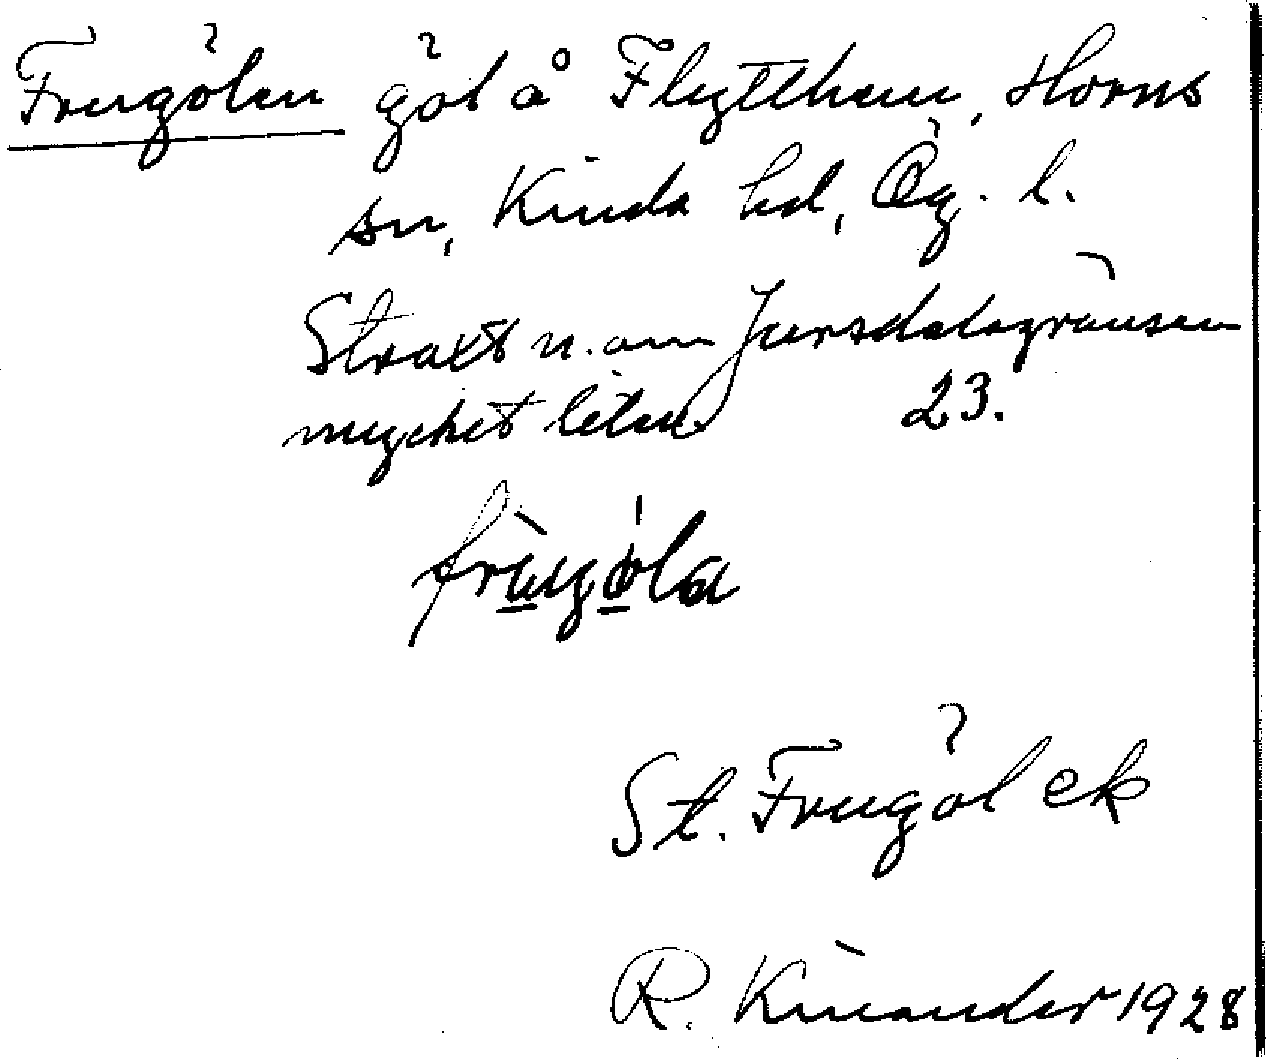 Frugölen göl å Flytthem, Horns
sn, Kinda hd, Ög. l.
Straxt n. om Jursdalagränsen
mycket liten 23.
frùgǿla
St. Frugöl ek
R. Kinander 1928